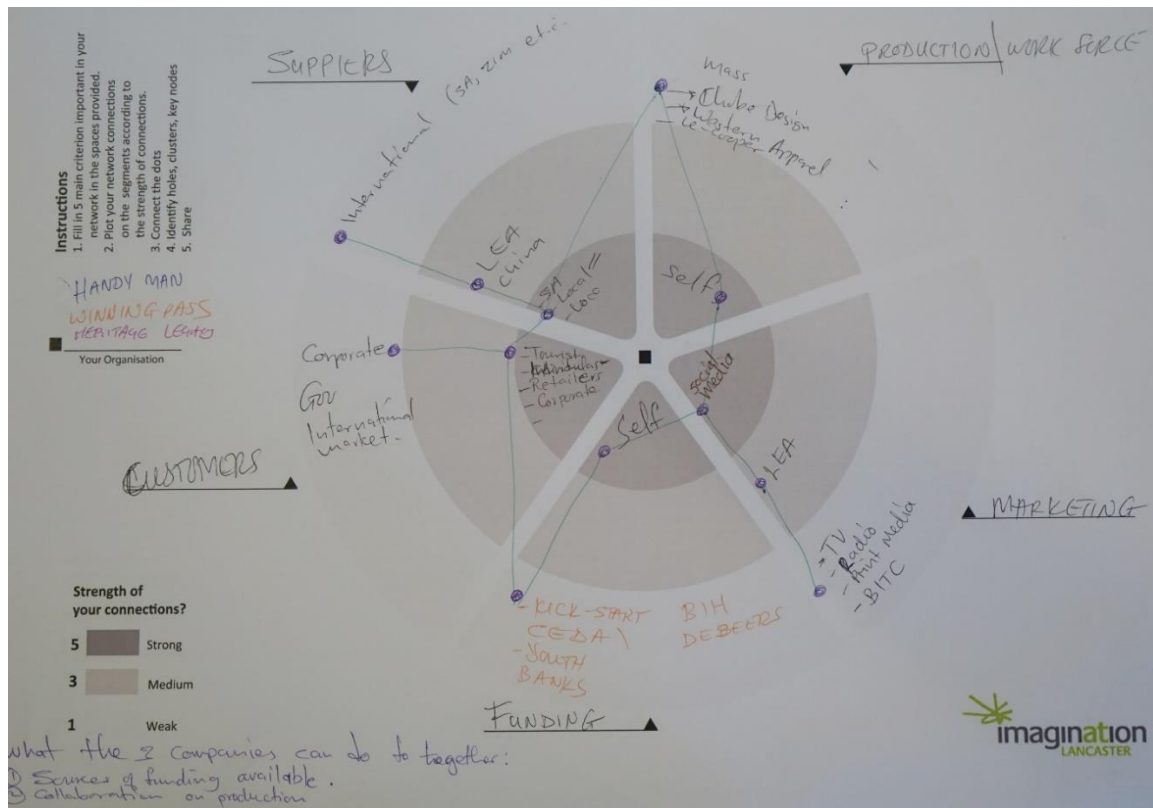 SUPPLIERS
PRODUCTION/ WORK FORCE
Instructions
1. Fill in 5 main criterion important in your
network in the spaces provided.
2. Plot your network connections
on the segments according to
the strength of connections.
3. Connect the dots
4. Identify holes, clusters, key nodes
5. Share
HANDY MAN
WINNING PASS
HERITAGE LEGACY
Your Organisation
International (SA, Zim etc.
mass
Chobe Design
Western Apparel
LEA
China
- SA
- Local
- Loco
Self
Corporate
Gov
International
market-
- Tourist
- Individuals
- Retailers
- Corporate
-
social
media
Self
LEA
CUSTOMERS
MARKETING
- TV
- Radio
- Print Media
- BITC
- KICK-START
CEDA\
- YOUTH
BANKS
BIH
DEBEERS
FUNDING
Strength of
your connections?
5 Strong
3 Medium
1 Weak
imagination
LANCASTER
What the 2 Companies can do to together:
1) Sources of funding available.
2) Collaboration on production